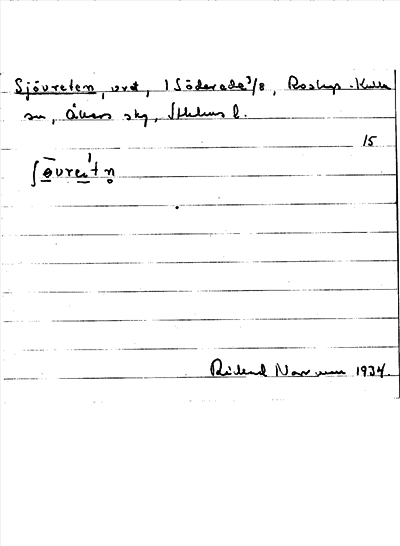 Sjövreten, vret, 1 Söderade 3/8, Roslags-Kulla
sn, Åkers skg, Sthlms l.
15
ʃøvre't n̥
Rickard Norrman 1934.